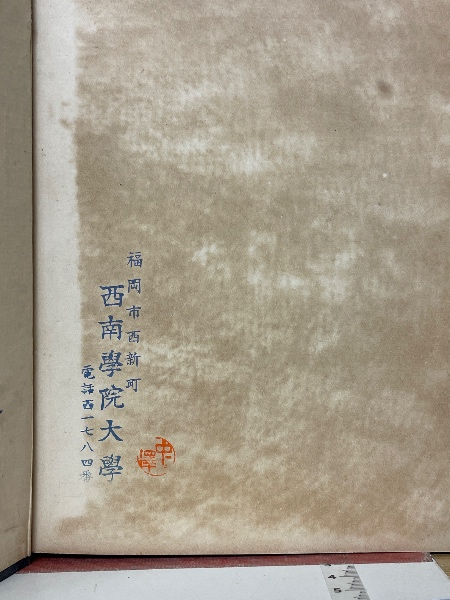 福岡市西新町
西南學院大學
電話西一七八四番
中澤
4
5